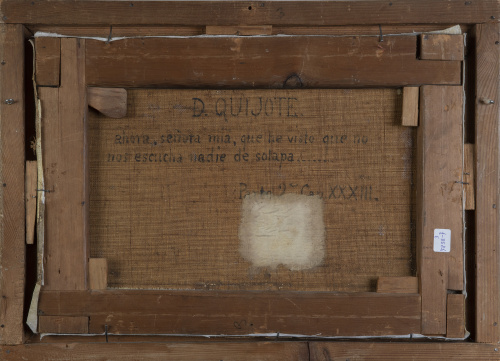 D. QUIJOTE
Ahora, señora mia, que he visto que no
nos escucha nadie de solapa......
Parte 2ª Cap. XXXIII.